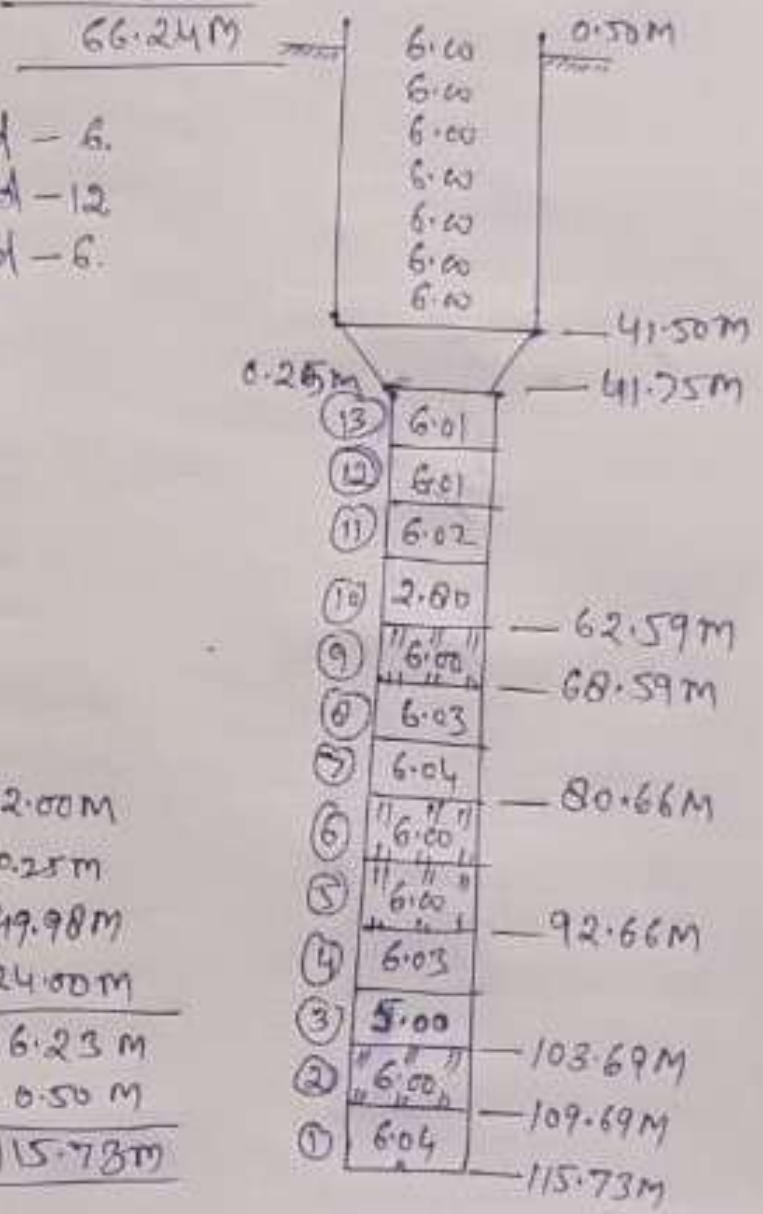 66.24M
6.00
0.50M
6.00
6.00
6.00
6.00
6.00
6.00
- 6.
- 12
- 6.
41.50M
0.25M
41.75M
13 6.01
12 6.01
11 6.02
10 2.80
62.59M
9 6.00
68.59M
8 6.03
7 6.04
80.66M
6 6.00
5 6.00
92.66M
4 6.03
3 5.00
103.69M
2 6.00
109.69M
1 6.04
115.73M
2.00M
0.25M
49.98M
24.00M
6.23M
0.50M
115.73M